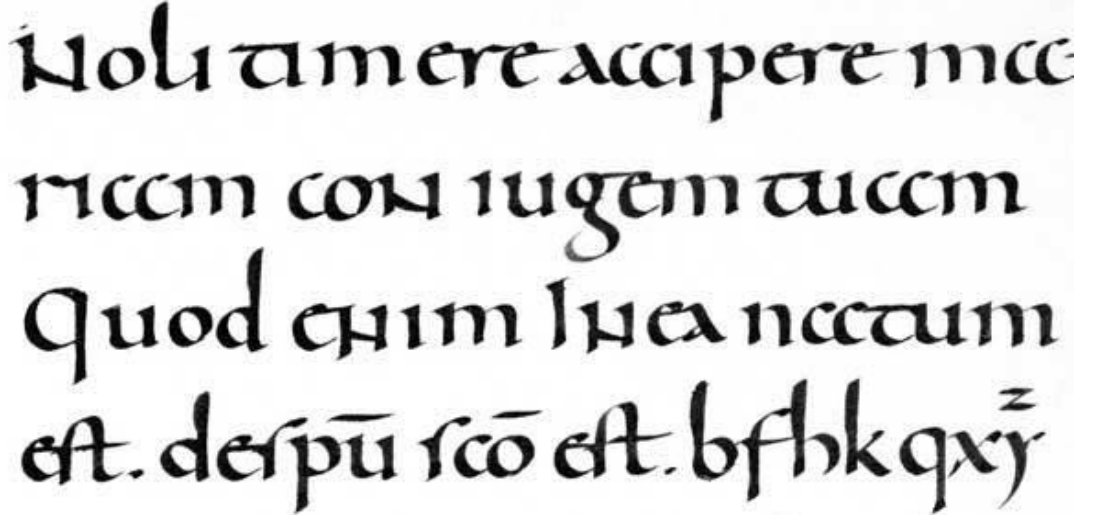 Noli timere accipere ma
riam con iugem tuam
Quod enim In ea natum
eſt. deſpū ſcō eſt. bfhkqxyz